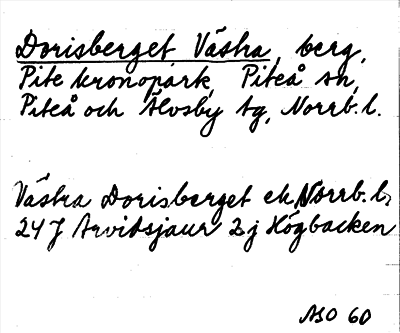 Dorisberget Västra, berg,
Pite kronopark, Piteå sn,
Piteå och Älvsby tg, Norrb.l.
Västra Dorisberget ek, Norrb.l.,
24 J Arvidsjaur 2 j Högbacken
ASO 60